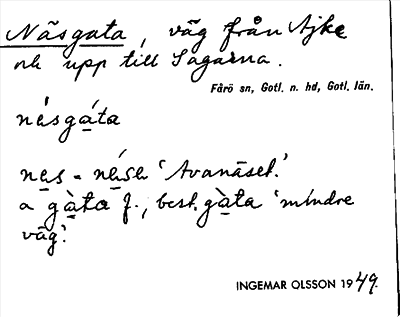 Näsgata, väg från Ajke
och upp till Sagarna.
Fårö sn, Gotl. n. hd, Gotl. län.
nésgá̱ta
ne̱s = né̱se 'Avanäset.'
a gà̱ta f., best. gà̱ta 'mindre
väg'.
INGEMAR OLSSON 1949.